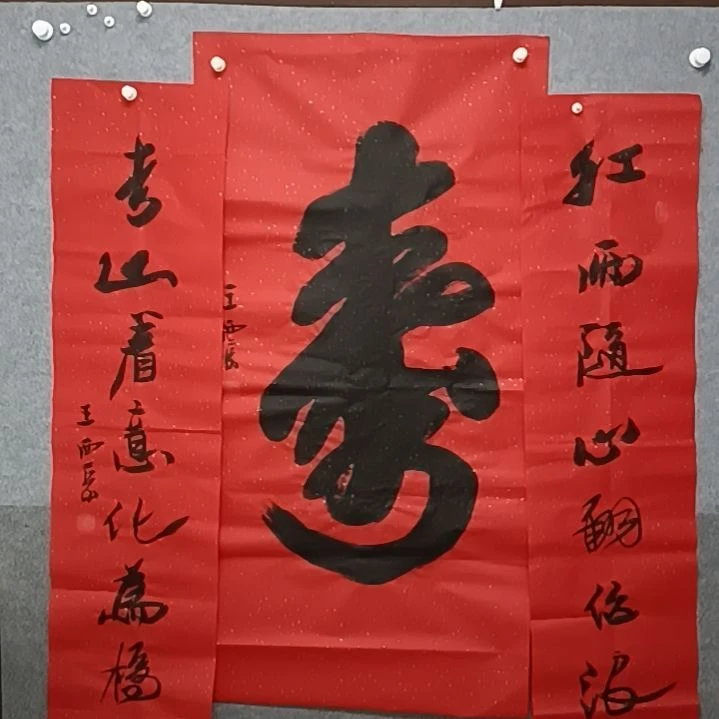 红雨随心翻作浪
寿
王西
青山着意化為橋
王西